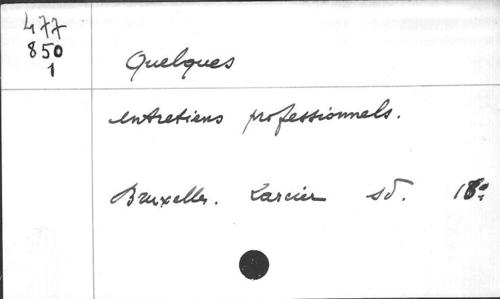 477
850
1
Quelques
entretiens professionnels.
Bruxelles. Larcier sd. 18°